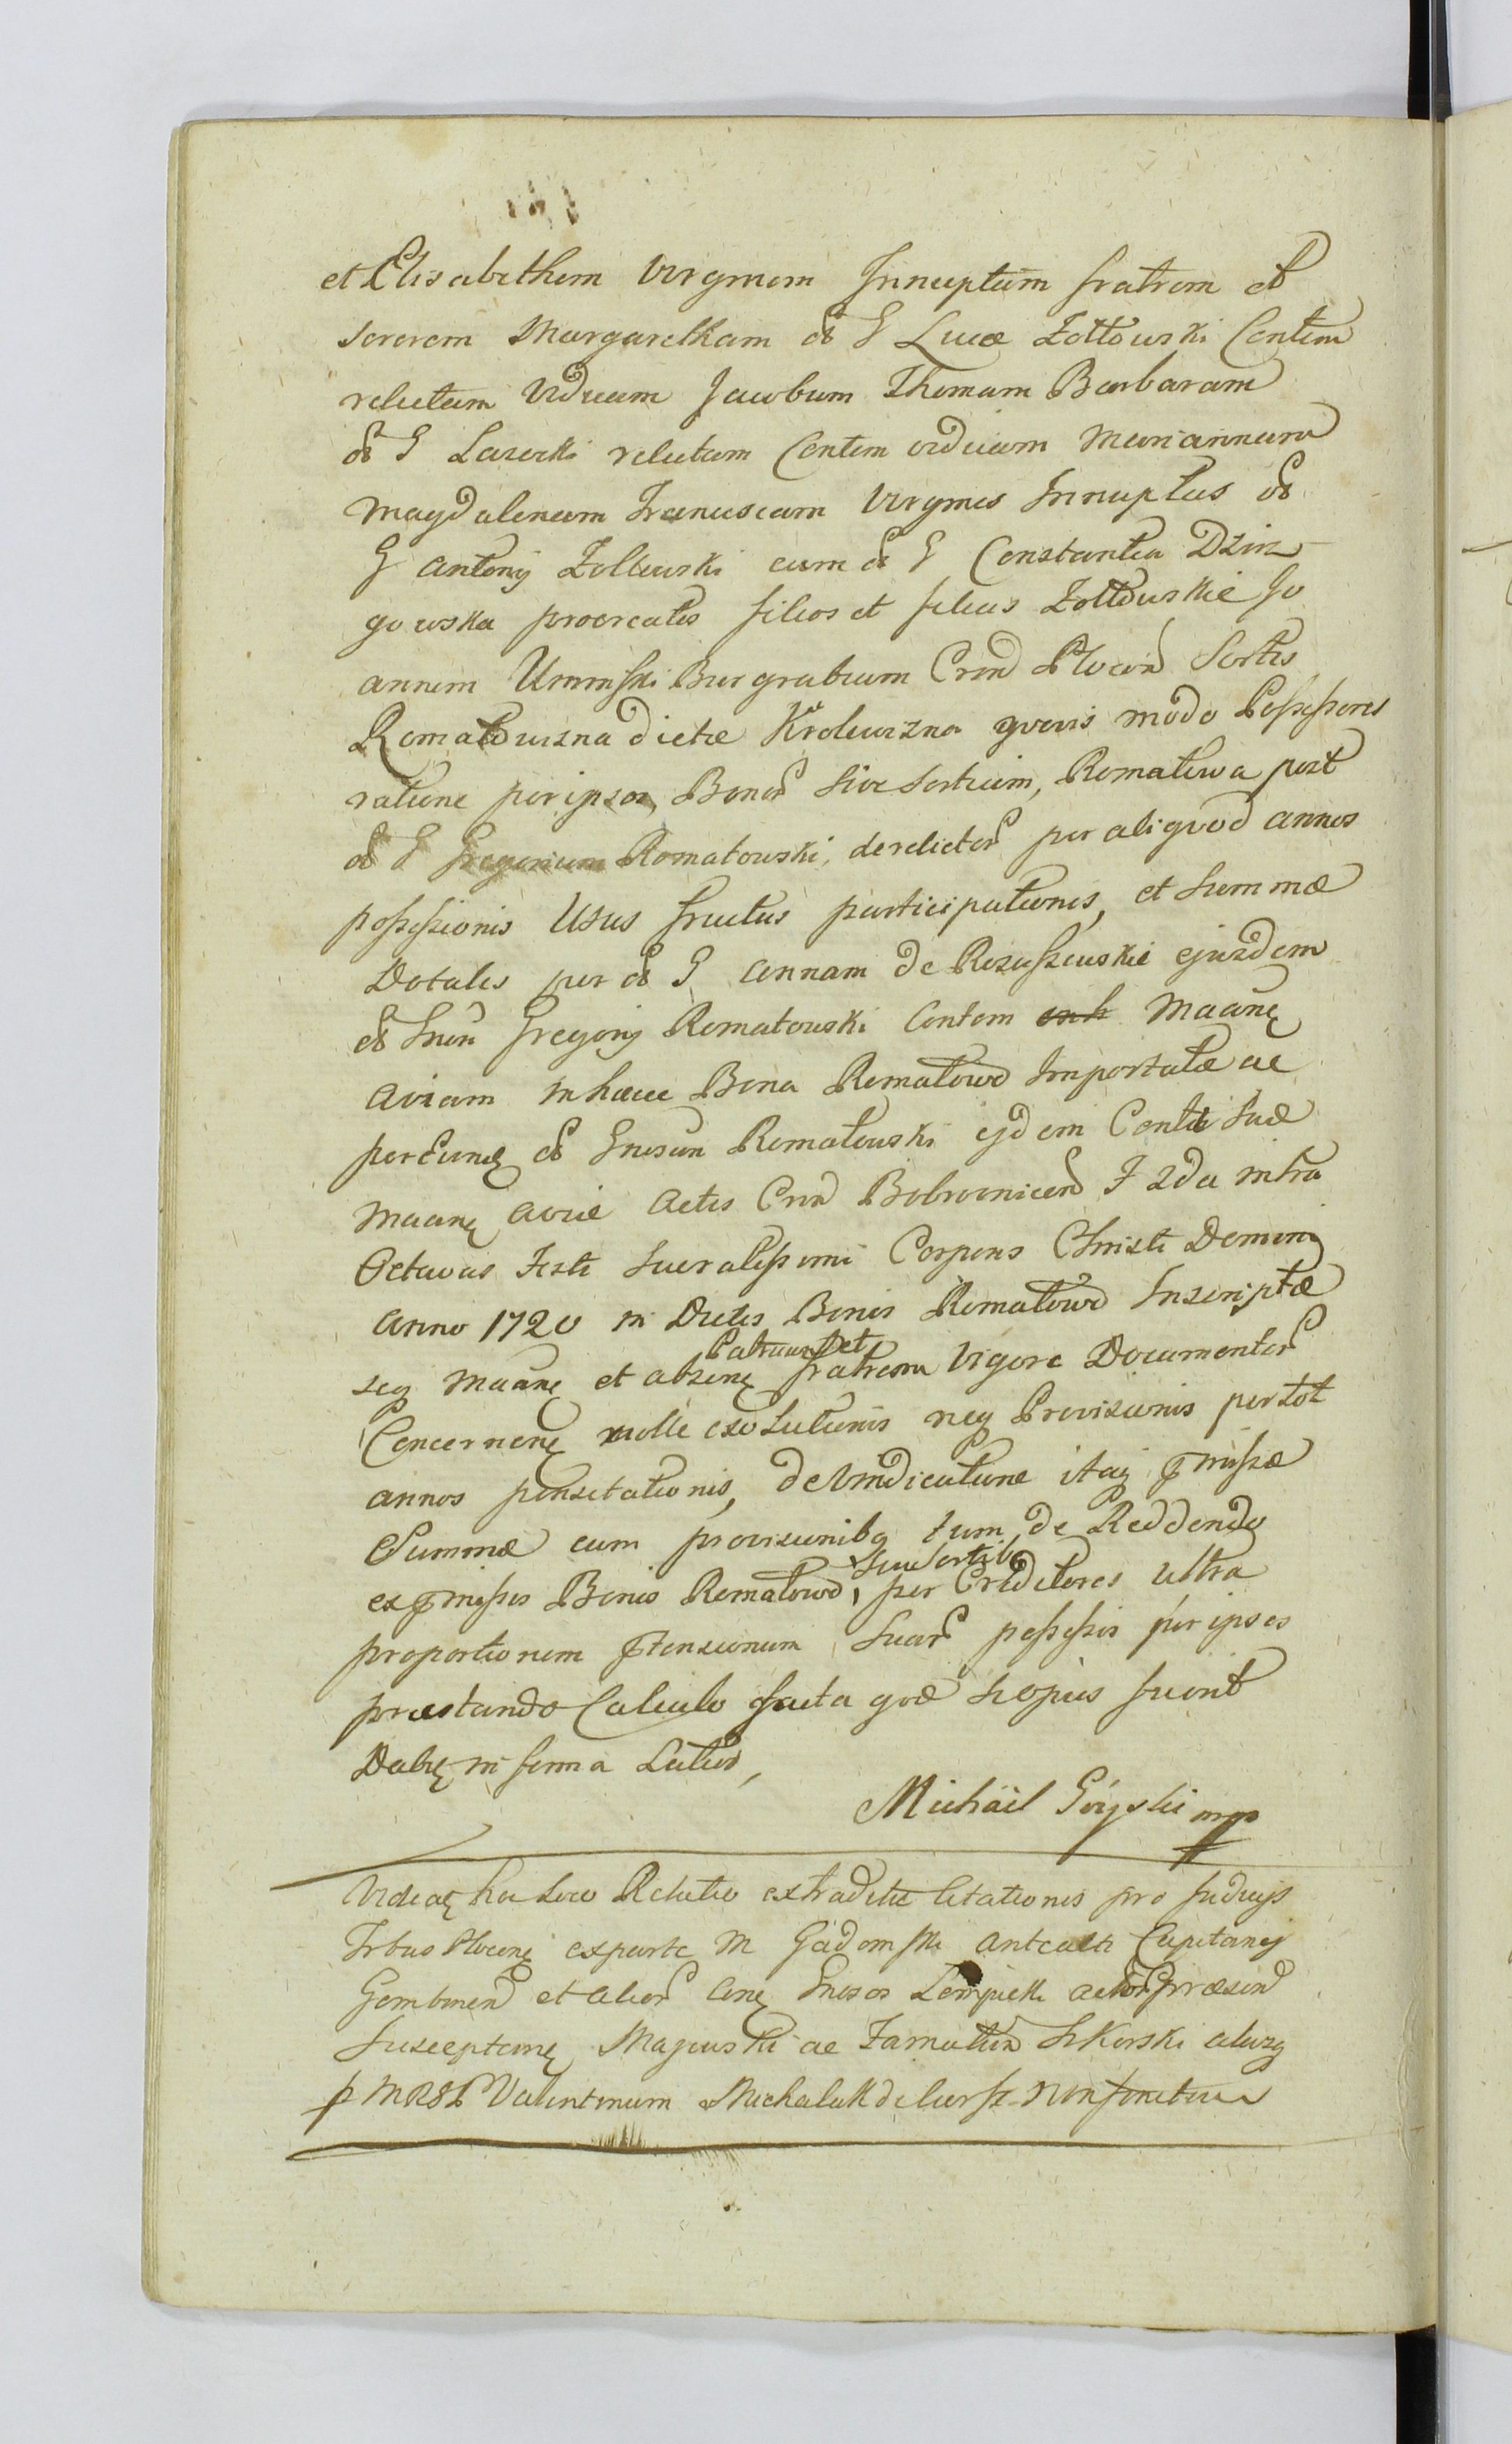 et Elisabethem Virginem Innuptam fratrem et
sororem Margaretham ol G Lucæ Zołtowski Contem
relictam Viduam Jacobum Thomam Barbaram
ol G Lazecki relictam Contem viduam Mariannam
Magdalenam Franciscam Virgines Innuptas ol
G Antonij Zołtowski cum ol G Constantia Dzin
gowska procreatos filios et filias Zołtowskie Jo
annem Uminski Burgrabium Crem Plocen Sortis
Romatowizna dictæ Krolewizna quovis modo Possessores
ratione per ipsos Bonor sive Sortium, Romatowa post
ol G Gregorium Romatowski, derelictor per aliquod annos
possessionis Usus fructus participationis, et Summæ
Dotalis per ol G Annam de Rzuszewskie ejusdem
ol Gnsi Gregorij Romatowski Contem Maane
Aviam in hæce Bona Romatowo Importatæ ac
per eune ol Gnosum Romatowski ejdem Conti Suæ
Maane Aviæ Actis Crem Bobrovnicen F 2da intra
Octavas Festi Sacratissimi Corporis Christi Domini
Anno 1720 in Dictis Bonis Romatowo Inscriptæ
Patruum et
seq Maane et absene fratrem Vigore Documentor
Concernene nolle exolutionis neq Provisionis per tot
annos pensitationis, de Vindicatione itaq pmissæ
Summæ cum provisionibq tum de Reddendo
Seu Sortibq
ex pmissis Bonis Romatowo, per Creditores ultra
proportionem ptensionum Suar possessis per ipsos
præstando Calculo facta quæ Sæpius fuerit
Dabe in forma Latior,
Michäil Góyski mpp
Videae hoc loco Relatio extraditæ Citationis pro Judicijs
Trbus Plocene ex parte M Gadomski Anteacti Capitanei
Gombinen et alior Cone Gnosos Lempicki actor præsen
Susceptane Majewski ac Famatum Sikorski aliosq
p MRSP Valentinum Michalak de Liersz non fonetur